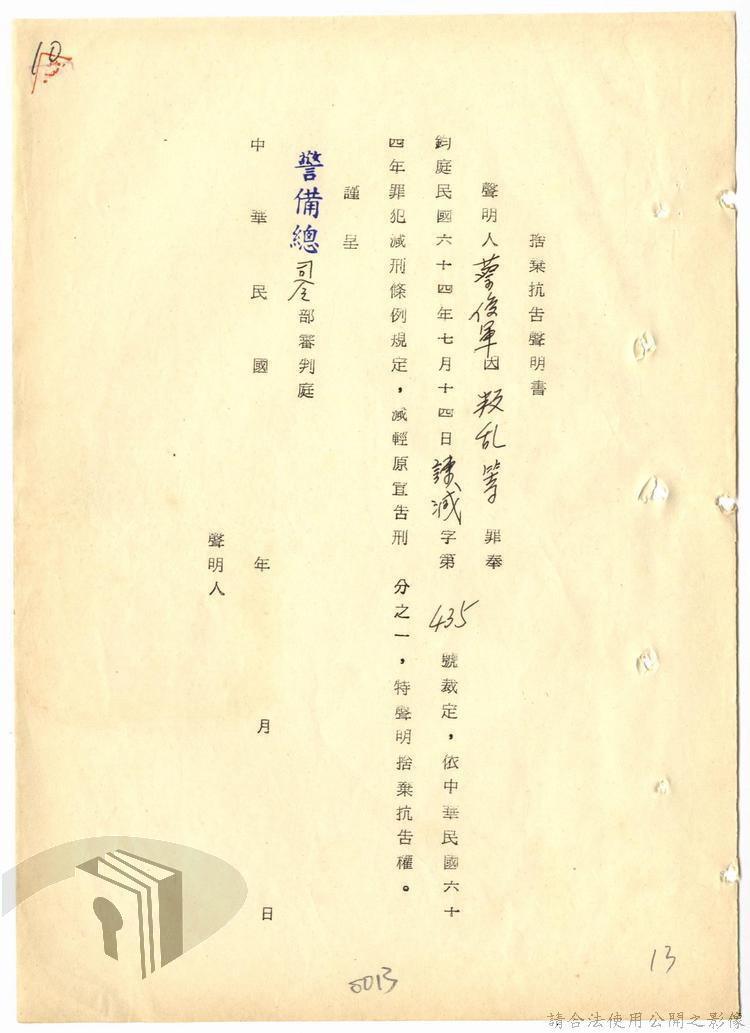 捨棄抗告聲明書
聲明人蔡俊軍因叛乱等罪奉
鈞庭民國六十四年七月十四日諫減字第435號裁定，依中華民國六十
四年罪犯減刑條例規定，減輕原宣告刑　分之一，特聲明捨棄抗告權。
謹呈
警備總司令部審判庭
聲明人
中華民國　年　月　日
10
13
0013
請合法使用公開之影像